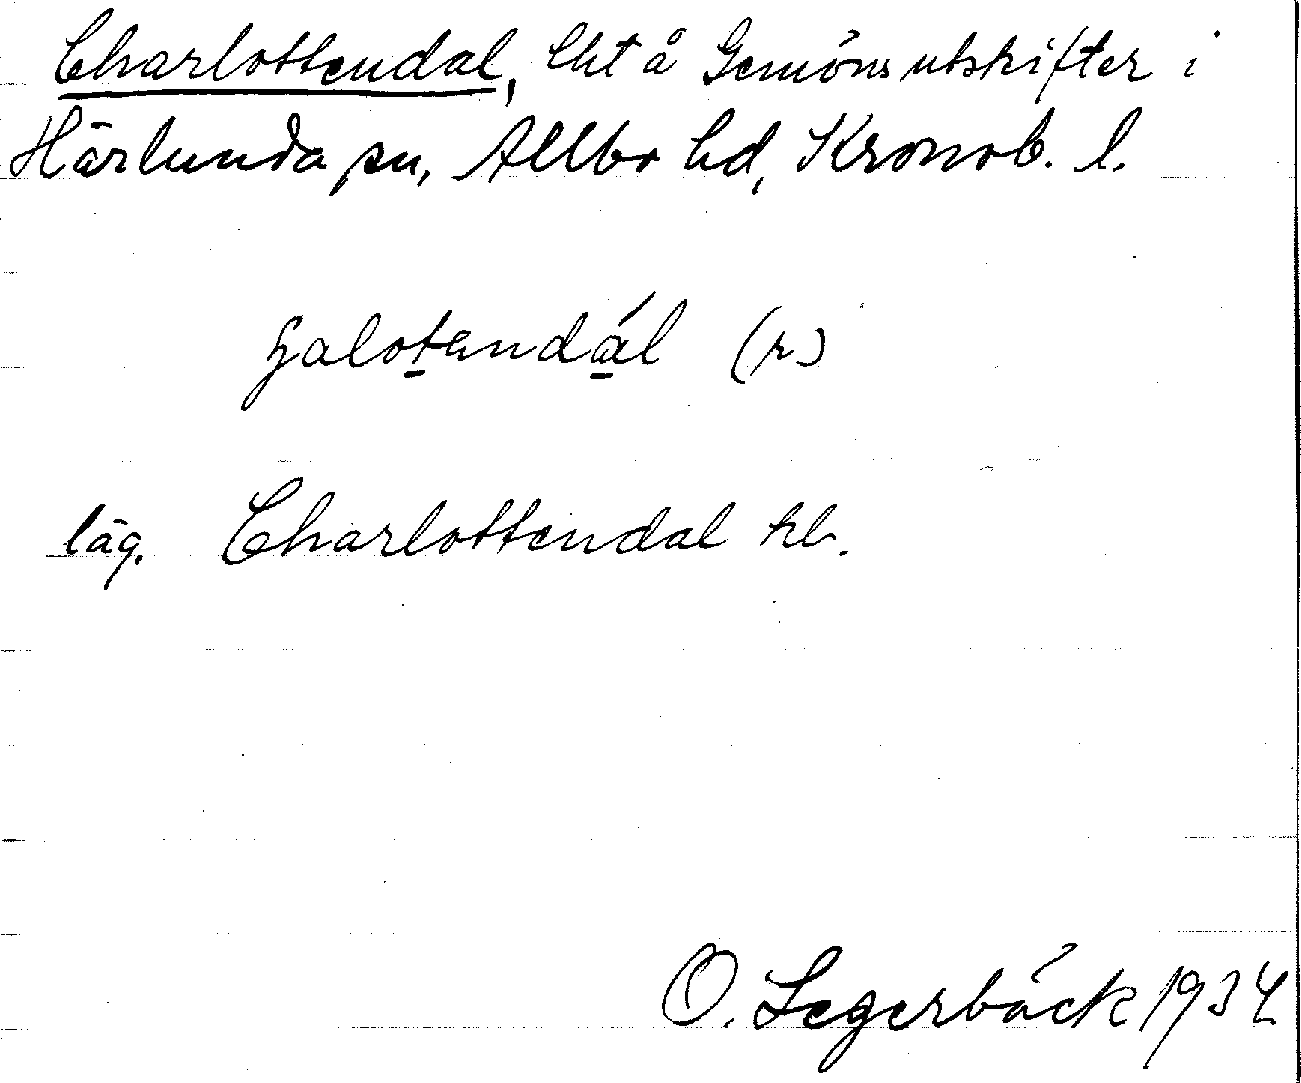 Charlottendal, lht å Gemöns utskifter i
Härlunda sn, Allbo hd, Kronob. l.
ʂalotendál (r)
läg. Charlottendal kl.
O. Segerbäck 1934